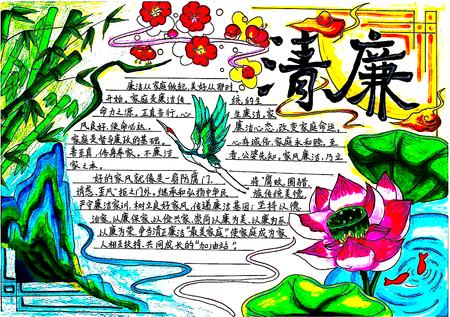 清廉
廉洁从家庭做起,美好从即时
开始。家庭是廉洁传统的生
命力之源,正直言行,心生廉洁,家
风良好,使命必达。廉洁心态,改变家庭命运,
家庭是督导廉政的基础。心存戒俗,家庭永和睦,至
善至真,传身尊家,不廉洁者,公嫠先知,家风廉洁,乃立
家之本。
好的家风就像是一扇防腐门,将“腐蚀、围猎、
诱惑、歪风”拒之门外,继承和弘扬中华民族传统美德,
严守廉洁家训,树立良好家风,传递廉洁基因;坚持以德
治家,以廉保家,以俭兴家,崇尚以廉为美,以廉为乐,
以廉为荣,争当清正廉洁“最美家庭”,使家庭成为家
人相互扶持、共同成长的“加油站”。